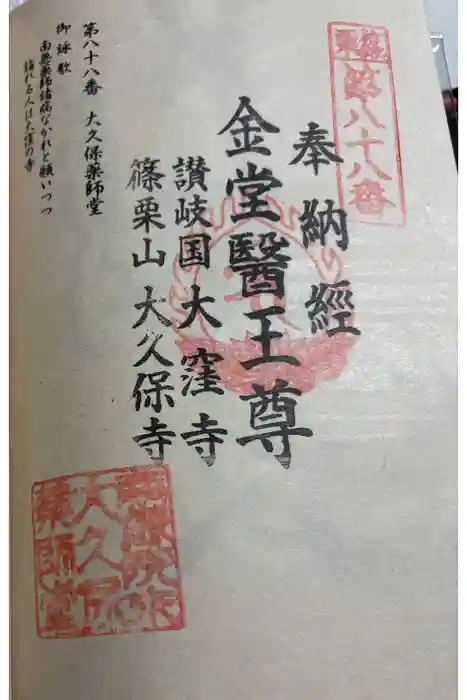 第八十八番
奉納經
金堂醫王尊
讃岐国大窪寺
篠栗山大久保寺
第八十八番 大久保薬師堂
御詠歌
南無薬師諸病なかれと願いつつ
詣れる人は大窪の寺